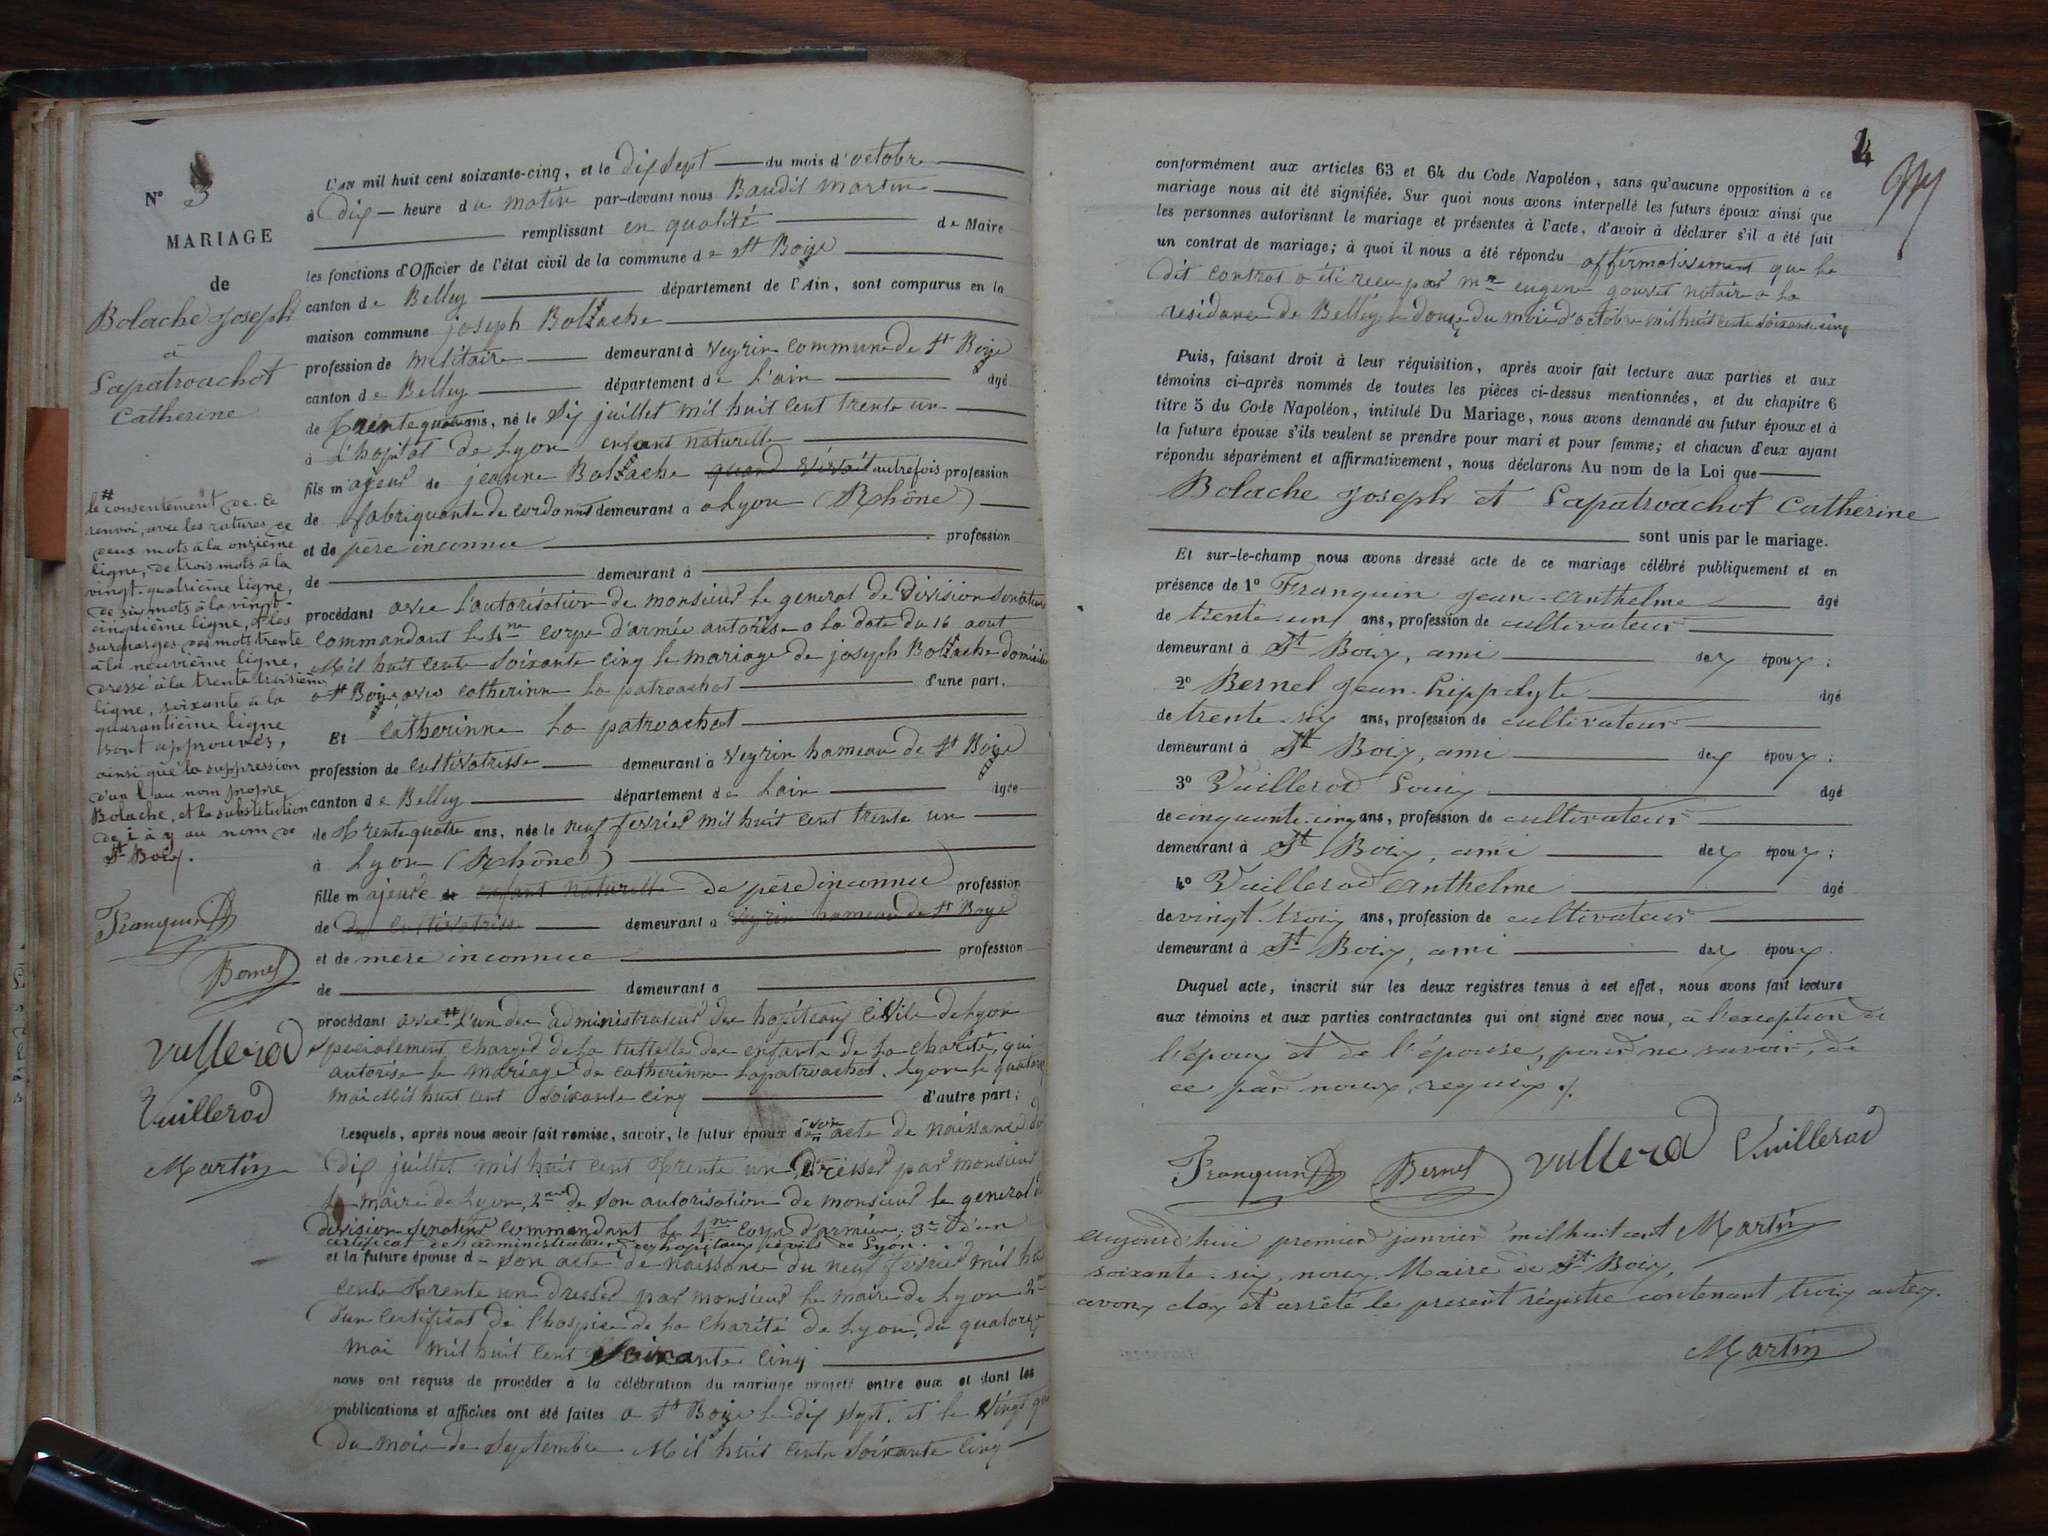 N° 3
MARIAGE
de
Bolache Joseph
à
Lapatroachot
Catherine
# le consentement de. ce
renvoi, avec les ratures de
deux mots à la onzième
ligne, de trois mots à la
vingt-quatrième ligne,
de six mots à la vingt-
cinquième ligne, et les
surcharges des mots trente
à la neuvième ligne,
dressé à la trente troisième
ligne, soixante à la
quarantième ligne
sont approuvés,
ainsi que la suppression
d'un l au nom propre
Bolache, et la substitution
de i à y au nom de
St Boiy.
Franquin
Bernel
vullerod
Vuillerod
Martin
L'an mil huit cent soixante-cinq, et le dix Sept du mois d'octobre
à Dix heure du matin par-devant nous Baudit Martin
remplissant en qualité de Maire
les fonctions d'Officier de l'état civil de la commune de St Boige
canton de Belley département de l'Ain, sont comparus en la
maison commune joseph Bollache
profession de militaire demeurant à Veyrin commune de St Boige
canton de Belley département de L'ain âgé
de Trente quatre ans, né le Dix juillet mil huit cent trente un
à L'hopital de Lyon enfant naturelle
fils majeur de jeanne Bollache quand vivait autrefois profession
de fabriquante de cordonnet demeurant à a Lyon (Rhône)
et de père inconnu profession
de demeurant à
procédant avec L'autorisation de monsieur Le general de Division Senateur
Commandant Le 4me corps d'armée autorise a la date du 16 aout
Mil huit cente Soixante cinq le mariage de joseph Bollache domicilié
a St Boige avec Catherinne La patroachot d'une part.
Et Catherinne La patroachot
profession de cultivatrisse demeurant à Veyrin hameau de St Boige
canton de Belley département de Lain âgée
de Trente quatre ans, née le neuf fevrier mil huit cent trente un
à Lyon (Rhône)
fille majeure de enfant naturelle de père inconnu profession
de de cultivatrisse demeurant à Veyrin hameau de St Boige
et de mere inconnue profession
de demeurant à
procédant avec # L'un des administrateur des hopiteaux civile de Lyon
specialement chargé de La tuttelle des enfants de La charité, qui
autorise le mariage de catherinne Lapatroachot. Lyon le quatorze
mai Mil huit cent Soixante cinq d'autre part;
Lesquels, après nous avoir fait remise, savoir, le futur époux de son acte de naissance du
Dix juillet mil huit cent Trente un Dressé par monsieur
Le maire de Lyon, 2me de Son autorisation de monsieur le general de
division Senateur commandant Le 4me corps d'armée; 3e d'un
certificat de l'administrateur des hopitaux civils de Lyon.
et la future épouse d- Son acte de naissance du neuf fevrier mil huit
cente Trente un dressé par monsieur Le maire de Lyon 2me
d'un certificat de l'hospice de La Charité de Lyon, du quatorze
mai mil huit cent Soixante cinq
nous ont requis de procéder à la célébration du mariage projeté entre eux et dont les
publications et affiches ont été faites a St Boige le dix Sept. et le vingt
Du mois de Septembre Mil huit cente Soixante cinq
4
conformément aux articles 63 et 64 du Code Napoléon, sans qu'aucune opposition à ce
mariage nous ait été signifiée. Sur quoi nous avons interpellé les futurs époux ainsi que
les personnes autorisant le mariage et présentes à l'acte, d'avoir à déclarer s'il a été fait
un contrat de mariage; à quoi il nous a été répondu affirmatisement que le
dit contrat a été reçu par me eugene gouvet notaire a la
residance de Belley le douze du mois d'octobre mil huit cente soixante cinq
Puis, faisant droit à leur réquisition, après avoir fait lecture aux parties et aux
témoins ci-après nommés de toutes les pièces ci-dessus mentionnées, et du chapitre 6
titre 5 du Code Napoléon, intitulé Du Mariage, nous avons demandé au futur époux et à
la future épouse s'ils veulent se prendre pour mari et pour femme; et chacun d'eux ayant
répondu séparément et affirmativement, nous déclarons Au nom de la Loi que
Bolache Joseph et Lapatroachot Catherine
sont unis par le mariage.
Et sur-le-champ nous avons dressé acte de ce mariage célébré publiquement et en
présence de 1° Franquin Jean-Anthelme âgé
de trente-un ans, profession de cultivateur
demeurant à St Boiy, ami des époux;
2° Bernel Jean-hippolyte âgé
de trente-six ans, profession de cultivateur
demeurant à St Boiy, ami des époux;
3° Vuillerod Louis âgé
de cinquante-cinq ans, profession de cultivateur
demeurant à St Boiy, ami des époux;
4° Vuillerod Anthelme âgé
de vingt-trois ans, profession de cultivateur
demeurant à St Boiy, ami des époux.
Duquel acte, inscrit sur les deux registres tenus à cet effet, nous avons fait lecture
aux témoins et aux parties contractantes qui ont signé avec nous, à l'exception de
l'époux et de l'épouse, pour ne savoir, de
ce par nous requis ./.
Franquin Bernel vullerod Vuillerod
Martin
aujourd'hui premier janvier mil huit cent
soixante-six, nous, Maire de St Boiy,
avons clos et arrêté le present régistre contenant trois actes.
Martin